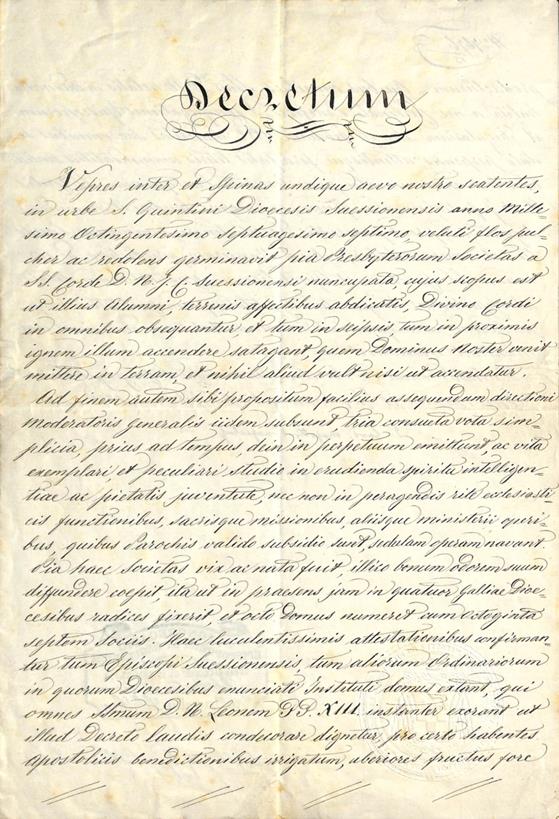 Decretum
Vepres inter et Spinas undique aevo nostro scatentes,
in urbe S. Quintini Dioecesis Suessionensis anno Mille-
simo Octingentesimo Septuagesimo Septimo, veluti flos pul-
cher ac redolens germinavit pia Presbyterorum Societas a
SS. Corde D. N. J. C. Suessionensi nuncupata, cujus scopus est
ut illius Alumni, terrenis affectibus abdicatis, Divino Cordi
in omnibus obsequantur et tum in seipsis tum in proximis
ignem illum accendere satagant, quem Dominus Noster venit
mittere in terram, et nihil aliud vult nisi ut accendatur.
Ad finem autem sibi propositum facilius assequendum directioni
Moderatoris generalis iidem subsunt, tria consueta vota sim-
plicia, prius ad tempus dein in perpetuum emittunt, ac vita
exemplari, et peculiari studio in erudienda spiritu intelligen-
tiae ac pietatis juventute, nec non in peragendis rite ecclesiasti-
cis functionibus, sacrisque missionibus, aliisque ministerii operi-
bus, quibus Parochis valido subsidio sunt, sedulam operam navant.
Pia haec Societas vix ac nata fuit, illico bonum odorem suum
diffundere coepit ita ut in praesens jam in quatuor Galliae Dioe-
cesibus radices fixerit, et octo domus numeret cum octoginta
septem Sociis. Haec luculentissimis attestationibus confirman-
tur tum Episcopi Suessionensis, tum aliorum Ordinariorum
in quorum Dioecesibus enunciati Instituti domus extant, qui
omnes SSmum D. N. Leonem PP. XIII instanter exorant ut
illud Decreto laudis condecorare dignetur, pro certo habentes
Apostolicis benedictionibus irrigatum, uberiores fructus fore